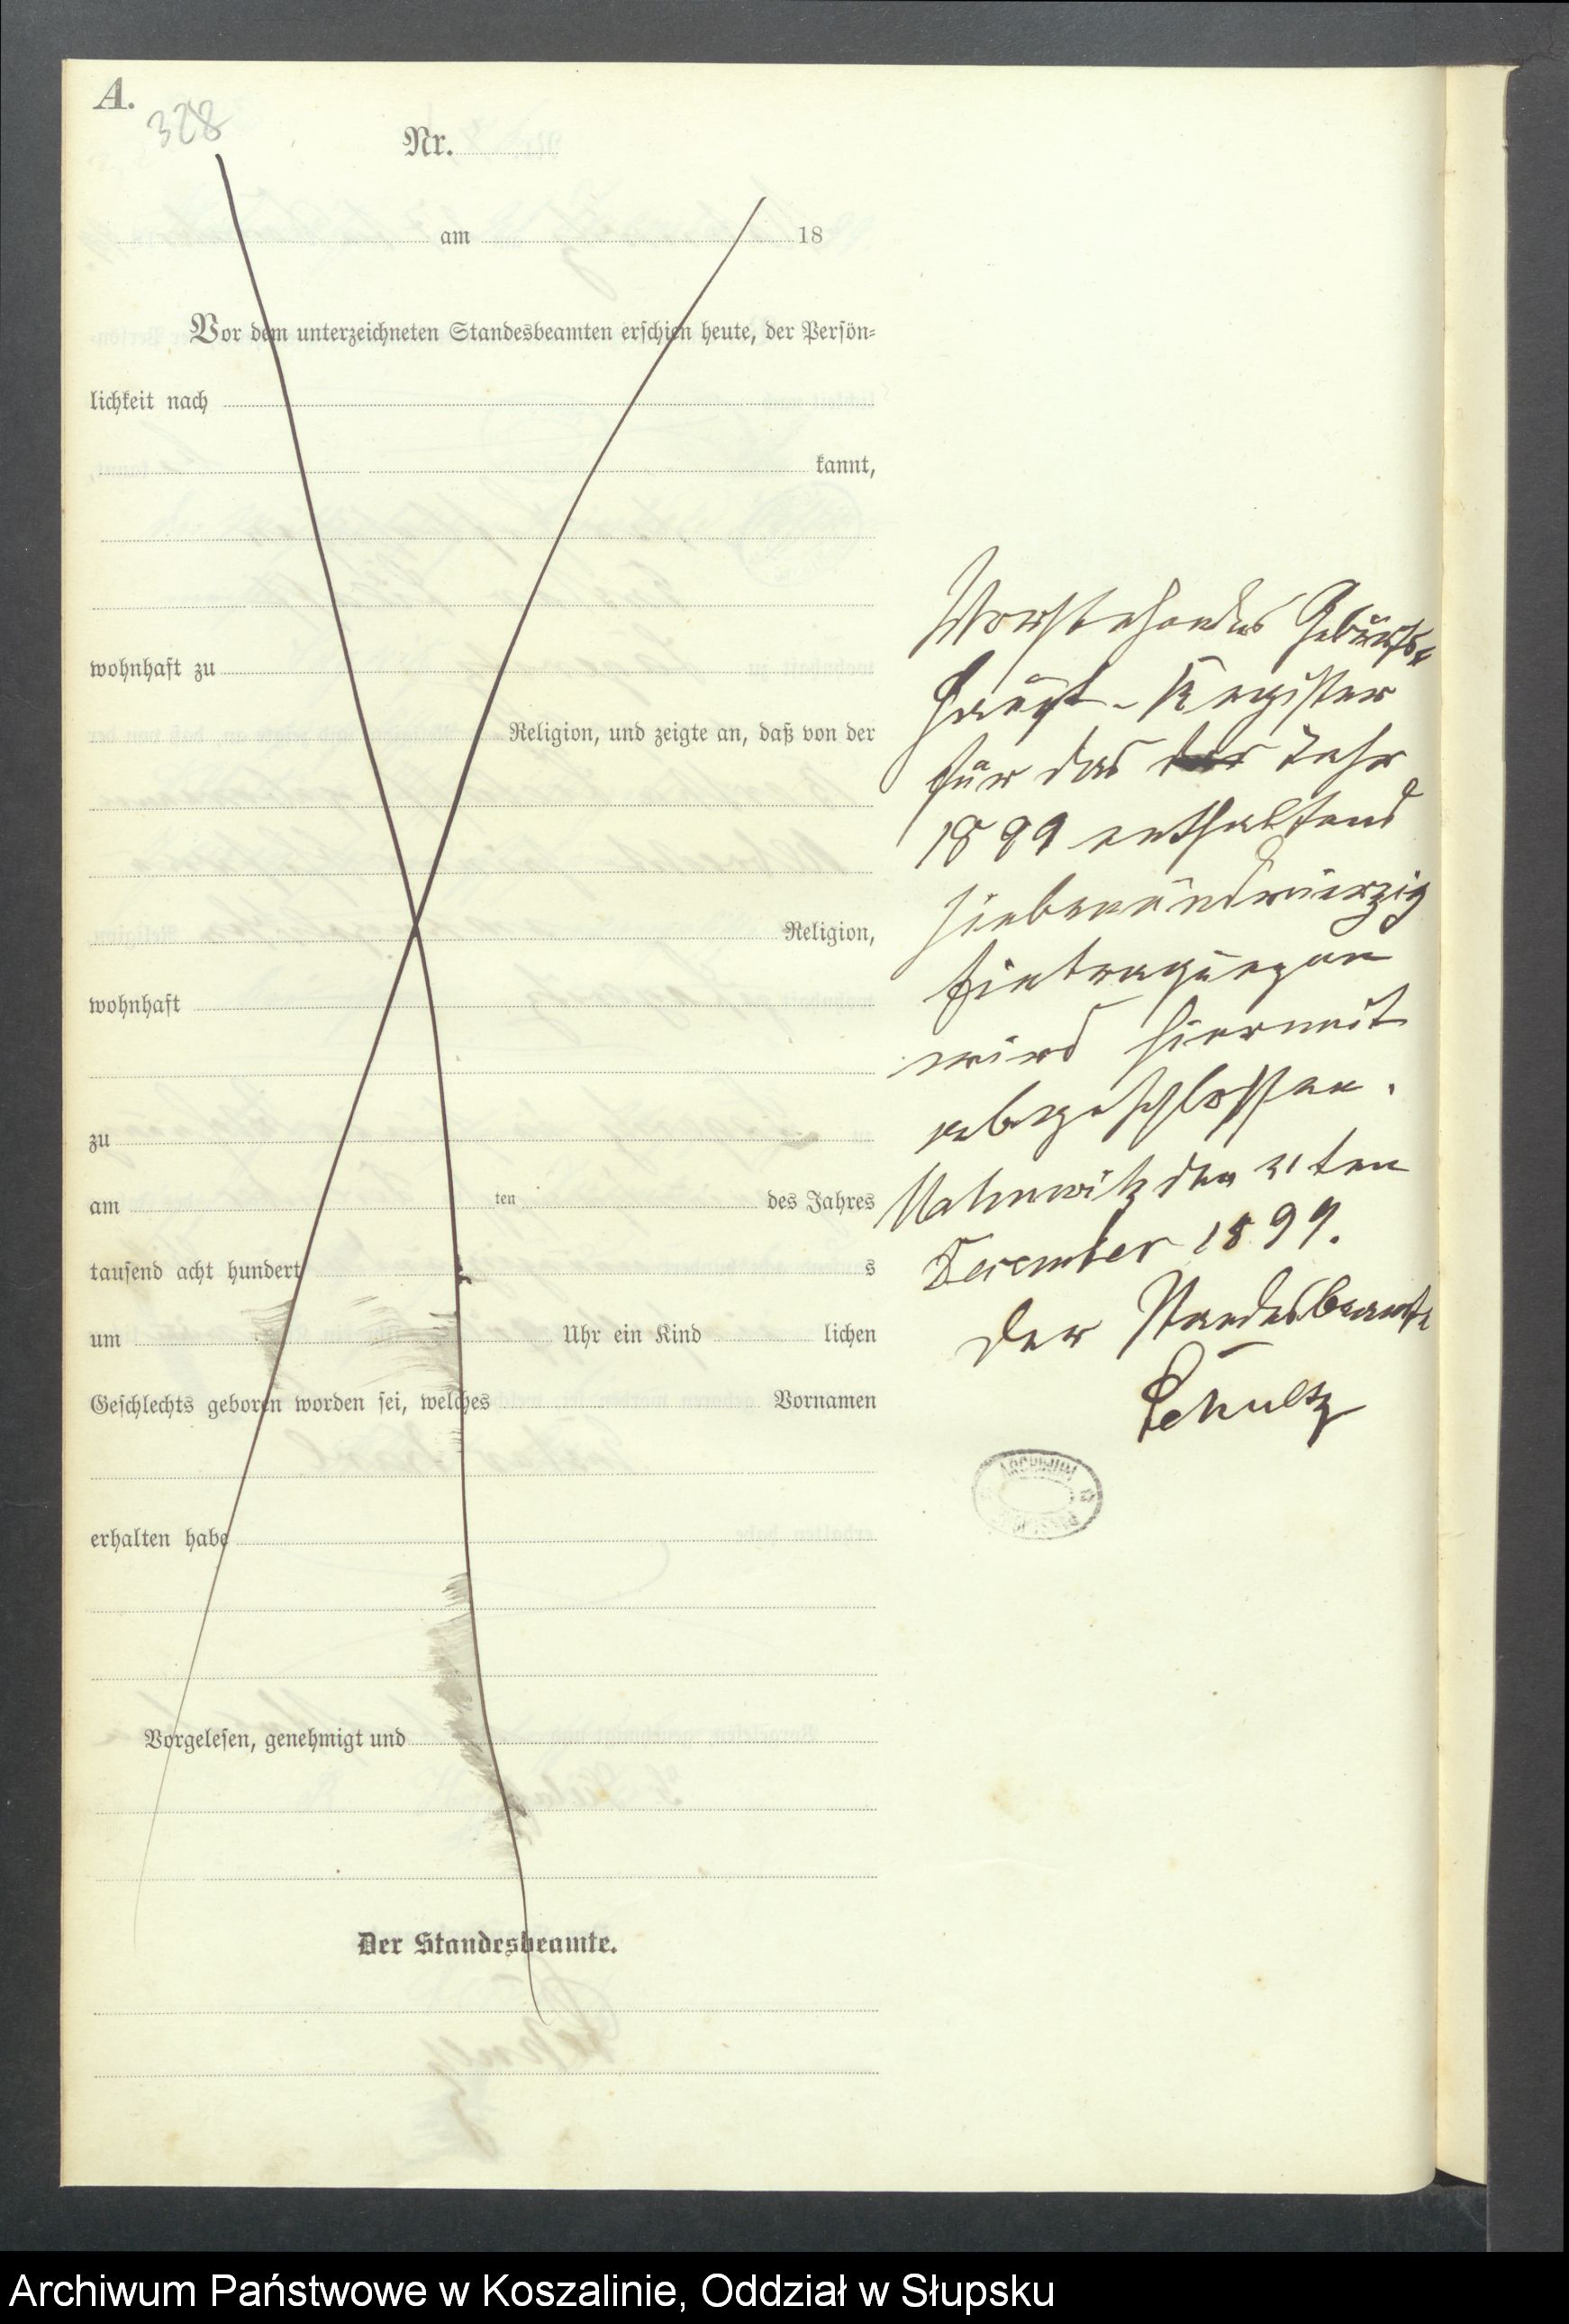 A.
328
Nr.
am 18
Vor dem unterzeichneten Standesbeamten erschien heute, der Persön=
lichkeit nach
kannt,
wohnhaft zu
Religion, und zeigte an, daß von der
Religion,
wohnhaft
zu
am ten des Jahres
tausend acht hundert s
um Uhr ein Kind lichen
Geschlechts geboren worden sei, welches Vornamen
erhalten habe
Vorgelesen, genehmigt und
Der Standesbeamte.
Vorstehendes Geburts-
Haupt-Register
für das Jahr
1899 enthaltend
siebenundvierzig
Eintragungen
wird hiermit
abgeschlossen.
den 31ten
December 1899.
Der Standesbeamte
Schultz
ARCHIWUM
Archiwum Państwowe w Koszalinie, Oddział w Słupsku